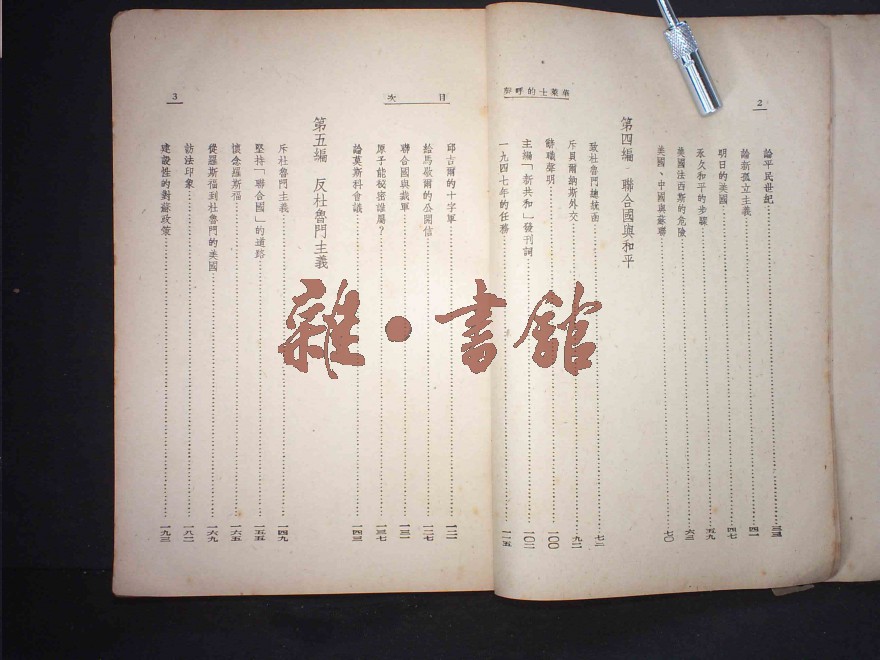 2
華萊士的呼聲
論平民世紀 三三
論新孤立主義 四一
明日的美國 四七
永久和平的步驟 五九
美國法西斯的危險 六三
美國、中國與蘇聯 七〇
第四編 聯合國與和平
致杜魯門總統函 七二
斥貝爾納斯外交 九二
辭職聲明 一〇〇
主編「新共和」發刊詞 一〇二
一九四七年的任務 一一五
目次
3
邱吉爾的十字軍 一二一
給馬歇爾的公開信 一二七
聯合國與裁軍 一三一
原子能秘密誰屬？ 一三七
論莫斯科會議 一四三
第五編 反杜魯門主義
斥杜魯門主義 一四九
堅持「聯合國」的道路 一五五
懷念羅斯福 一六五
從羅斯福到杜魯門的美國 一六九
訪法印象 一八二
建設性的對蘇政策 一九三
雜·書館